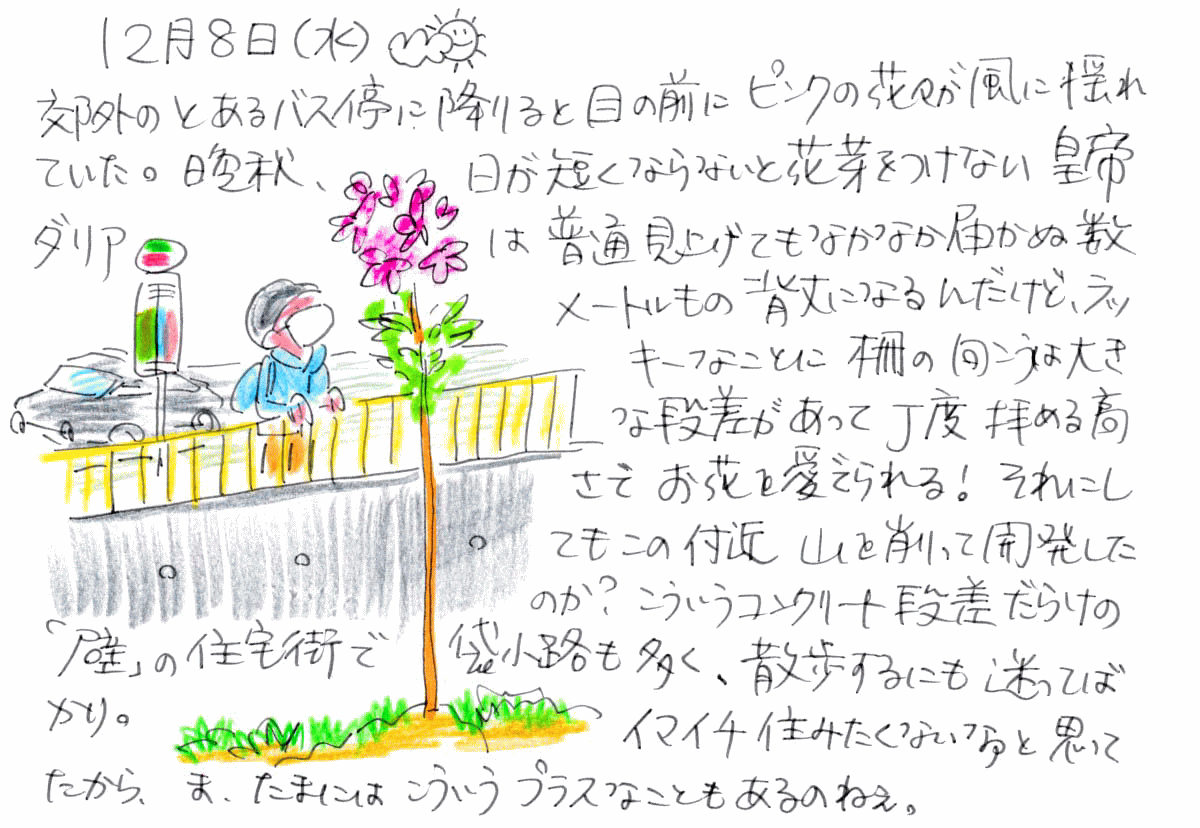 12月8日(水)
郊外のとあるバス停に降りると目の前にピンクの花々が風に揺れ
ていた。晩秋、日が短くならないと花芽をつけない皇帝
ダリアは普通見上げてもなかなか届かぬ数
メートルもの背丈になるんだけど、ラッ
キーなことに柵の向こうは大き
な段差があって丁度拝める高
さでお花を愛でられる!それにし
てもこの付近山を削って開発した
のか?こういうコンクリート段差だらけの
「壁」の住宅街で袋小路も多く、散歩するにも迷ってば
かり。イマイチ住みたくないなと思って
たから、ま、たまにはこういうプラスなこともあるのねぇ。